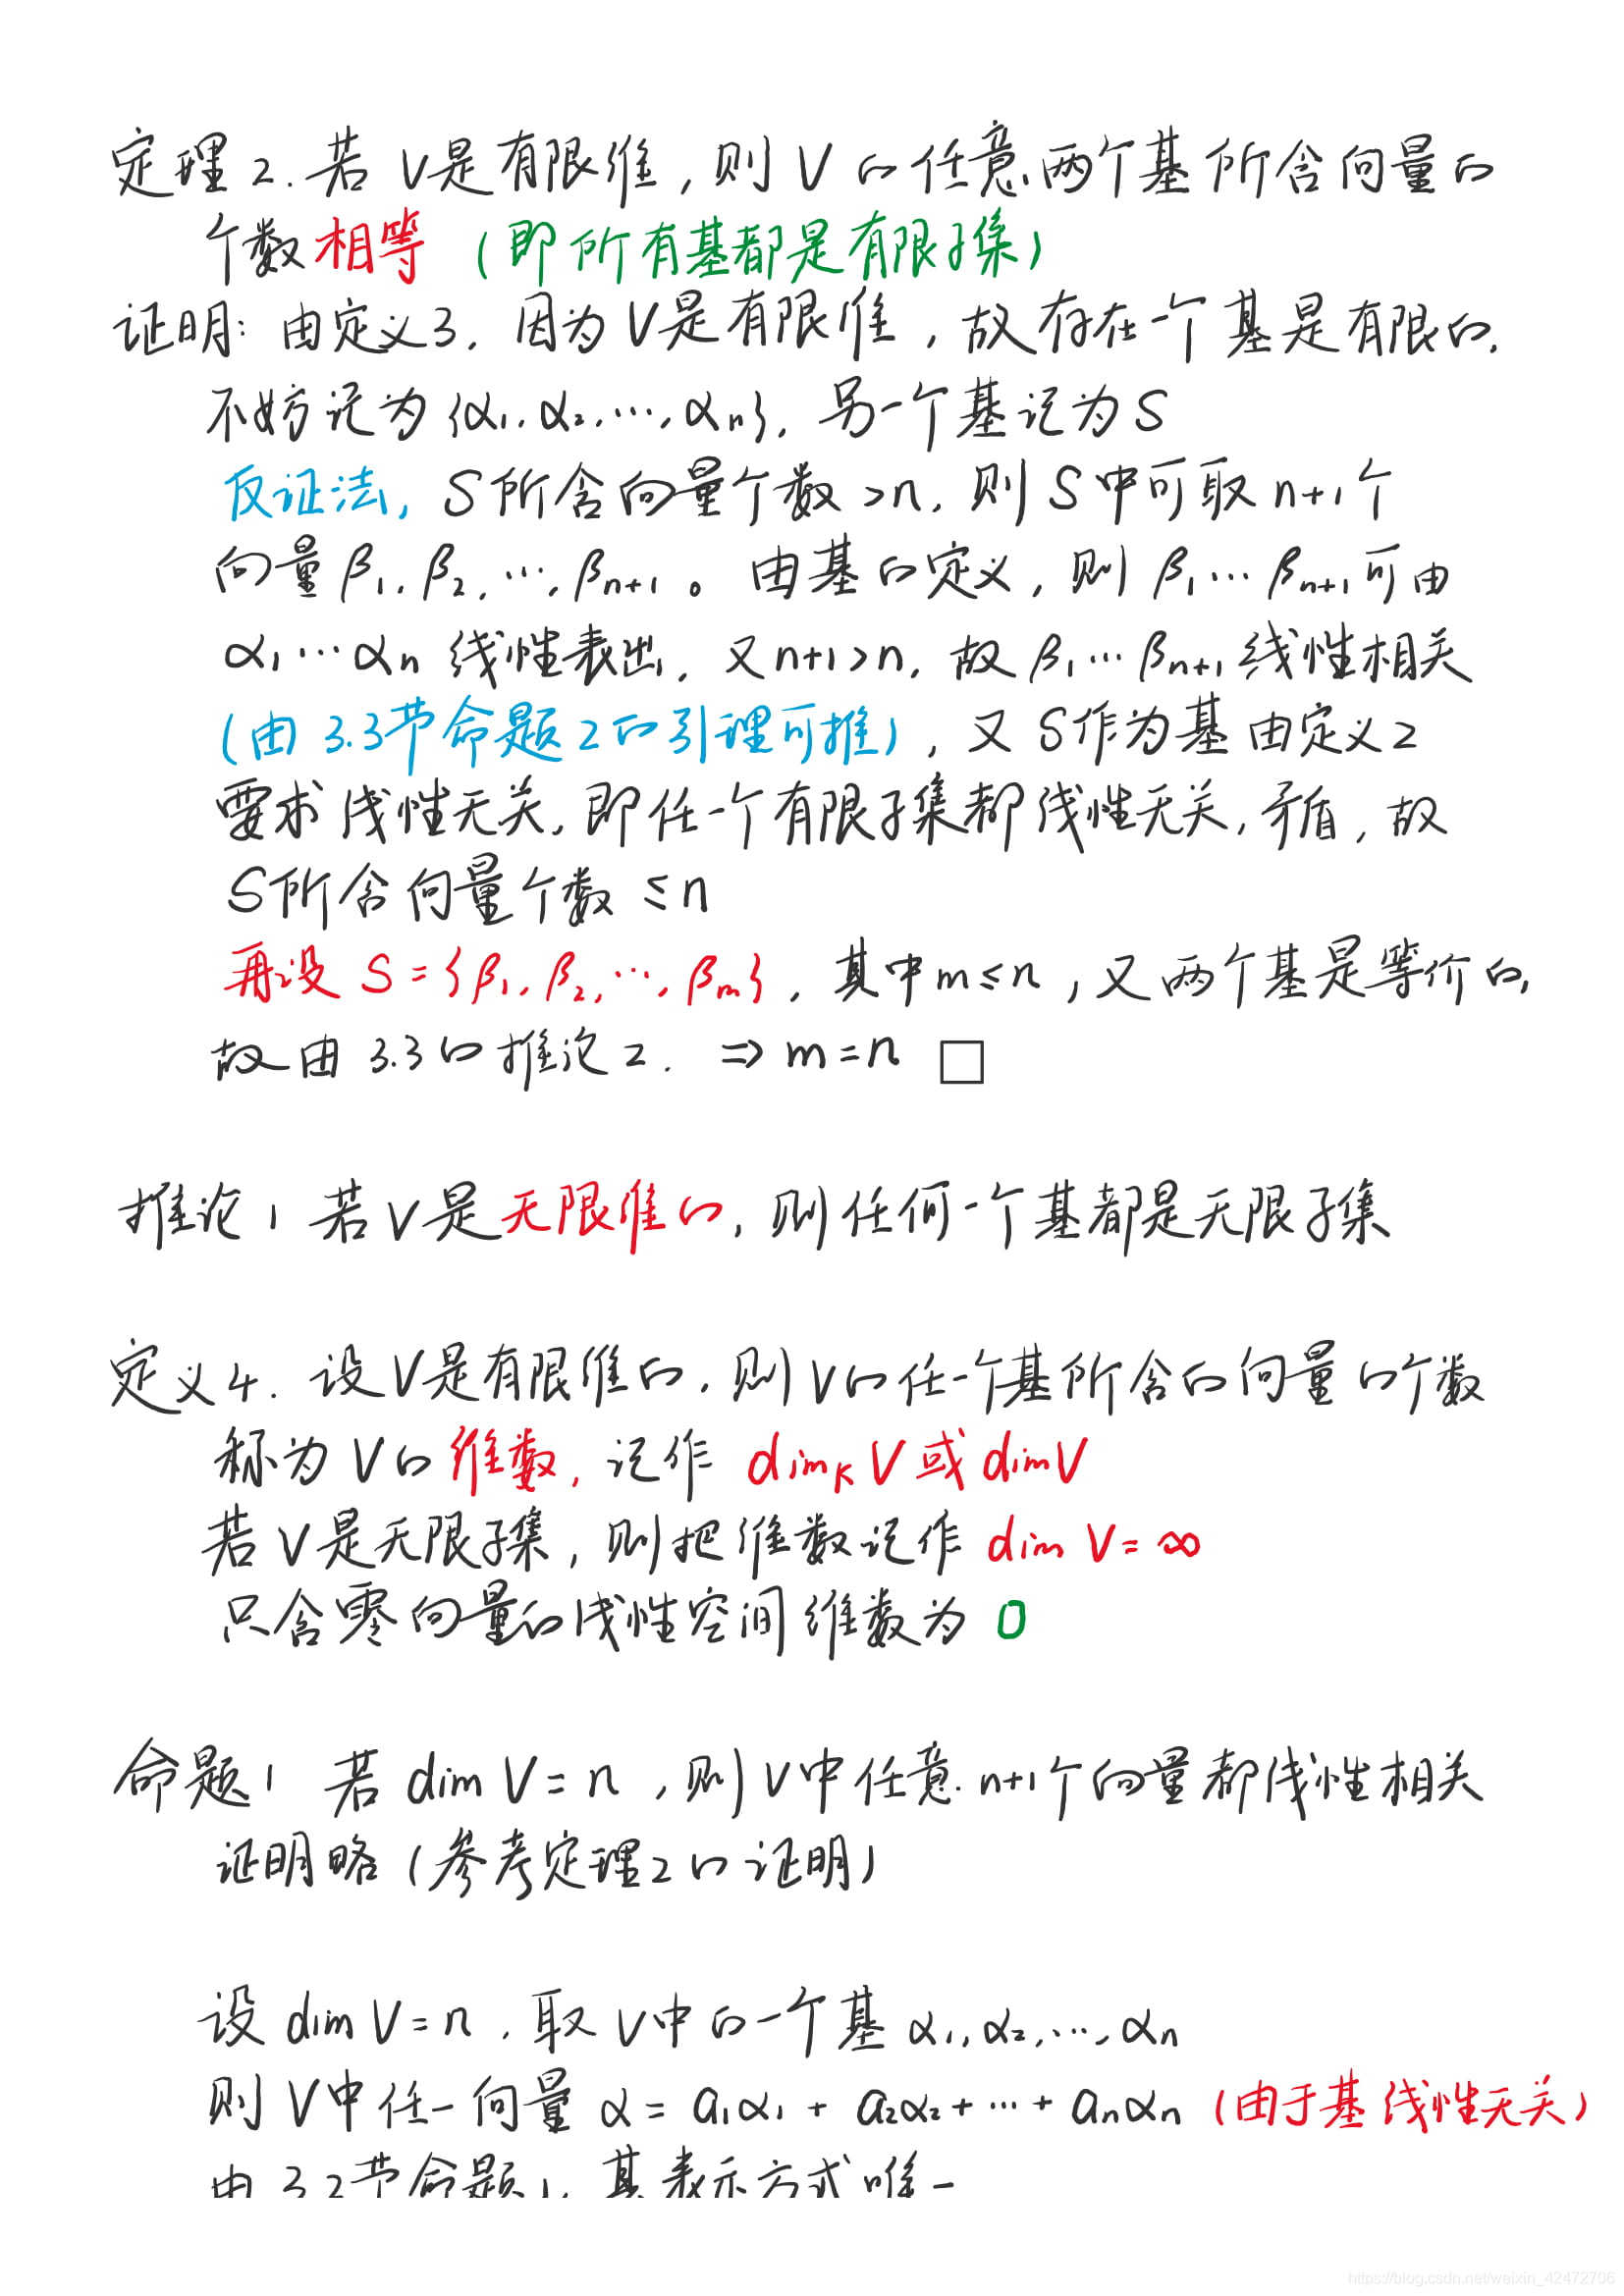 定理2. 若 V是有限维,则 V 的任意两个基所含向量的
个数相等 (即所有基都是有限子集)
证明: 由定义3, 因为V是有限维,故存在一个基是有限的,
不妨记为{α₁,α₂,…,αₙ}, 另一个基记为S
反证法, S所含向量个数>n, 则S中可取n+1个
向量β₁,β₂,…,βₙ₊₁。由基的定义,则β₁…βₙ₊₁可由
α₁…αₙ 线性表出, 又n+1>n, 故β₁…βₙ₊₁线性相关
(由3.3节命题2的引理可推),又S作为基由定义2
要求线性无关,即任一个有限子集都线性无关,矛盾,故
S所含向量个数≤n
再设 S={β₁,β₂,…,βₘ},其中m≤n,又两个基是等价的,
故由3.3的推论2. ⇒ m=n □
推论1 若V是无限维的,则任何一个基都是无限子集
定义4. 设V是有限维的,则V的任一个基所含的向量的个数
称为V的维数, 记作 dimₖV或dimV
若V是无限子集,则把维数记作 dim V=∞
只含零向量的线性空间维数为0
命题1 若 dim V=n,则V中任意n+1个向量都线性相关
证明略(参考定理2的证明)
设dim V=n,取V中的一个基α₁,α₂,…,αₙ
则V中任一向量 α = a₁α₁ + a₂α₂+…+ aₙαₙ (由于基线性无关)
由3.2节命题1,其表示方式唯一
https://blog.csdn.net/weixin_42472706